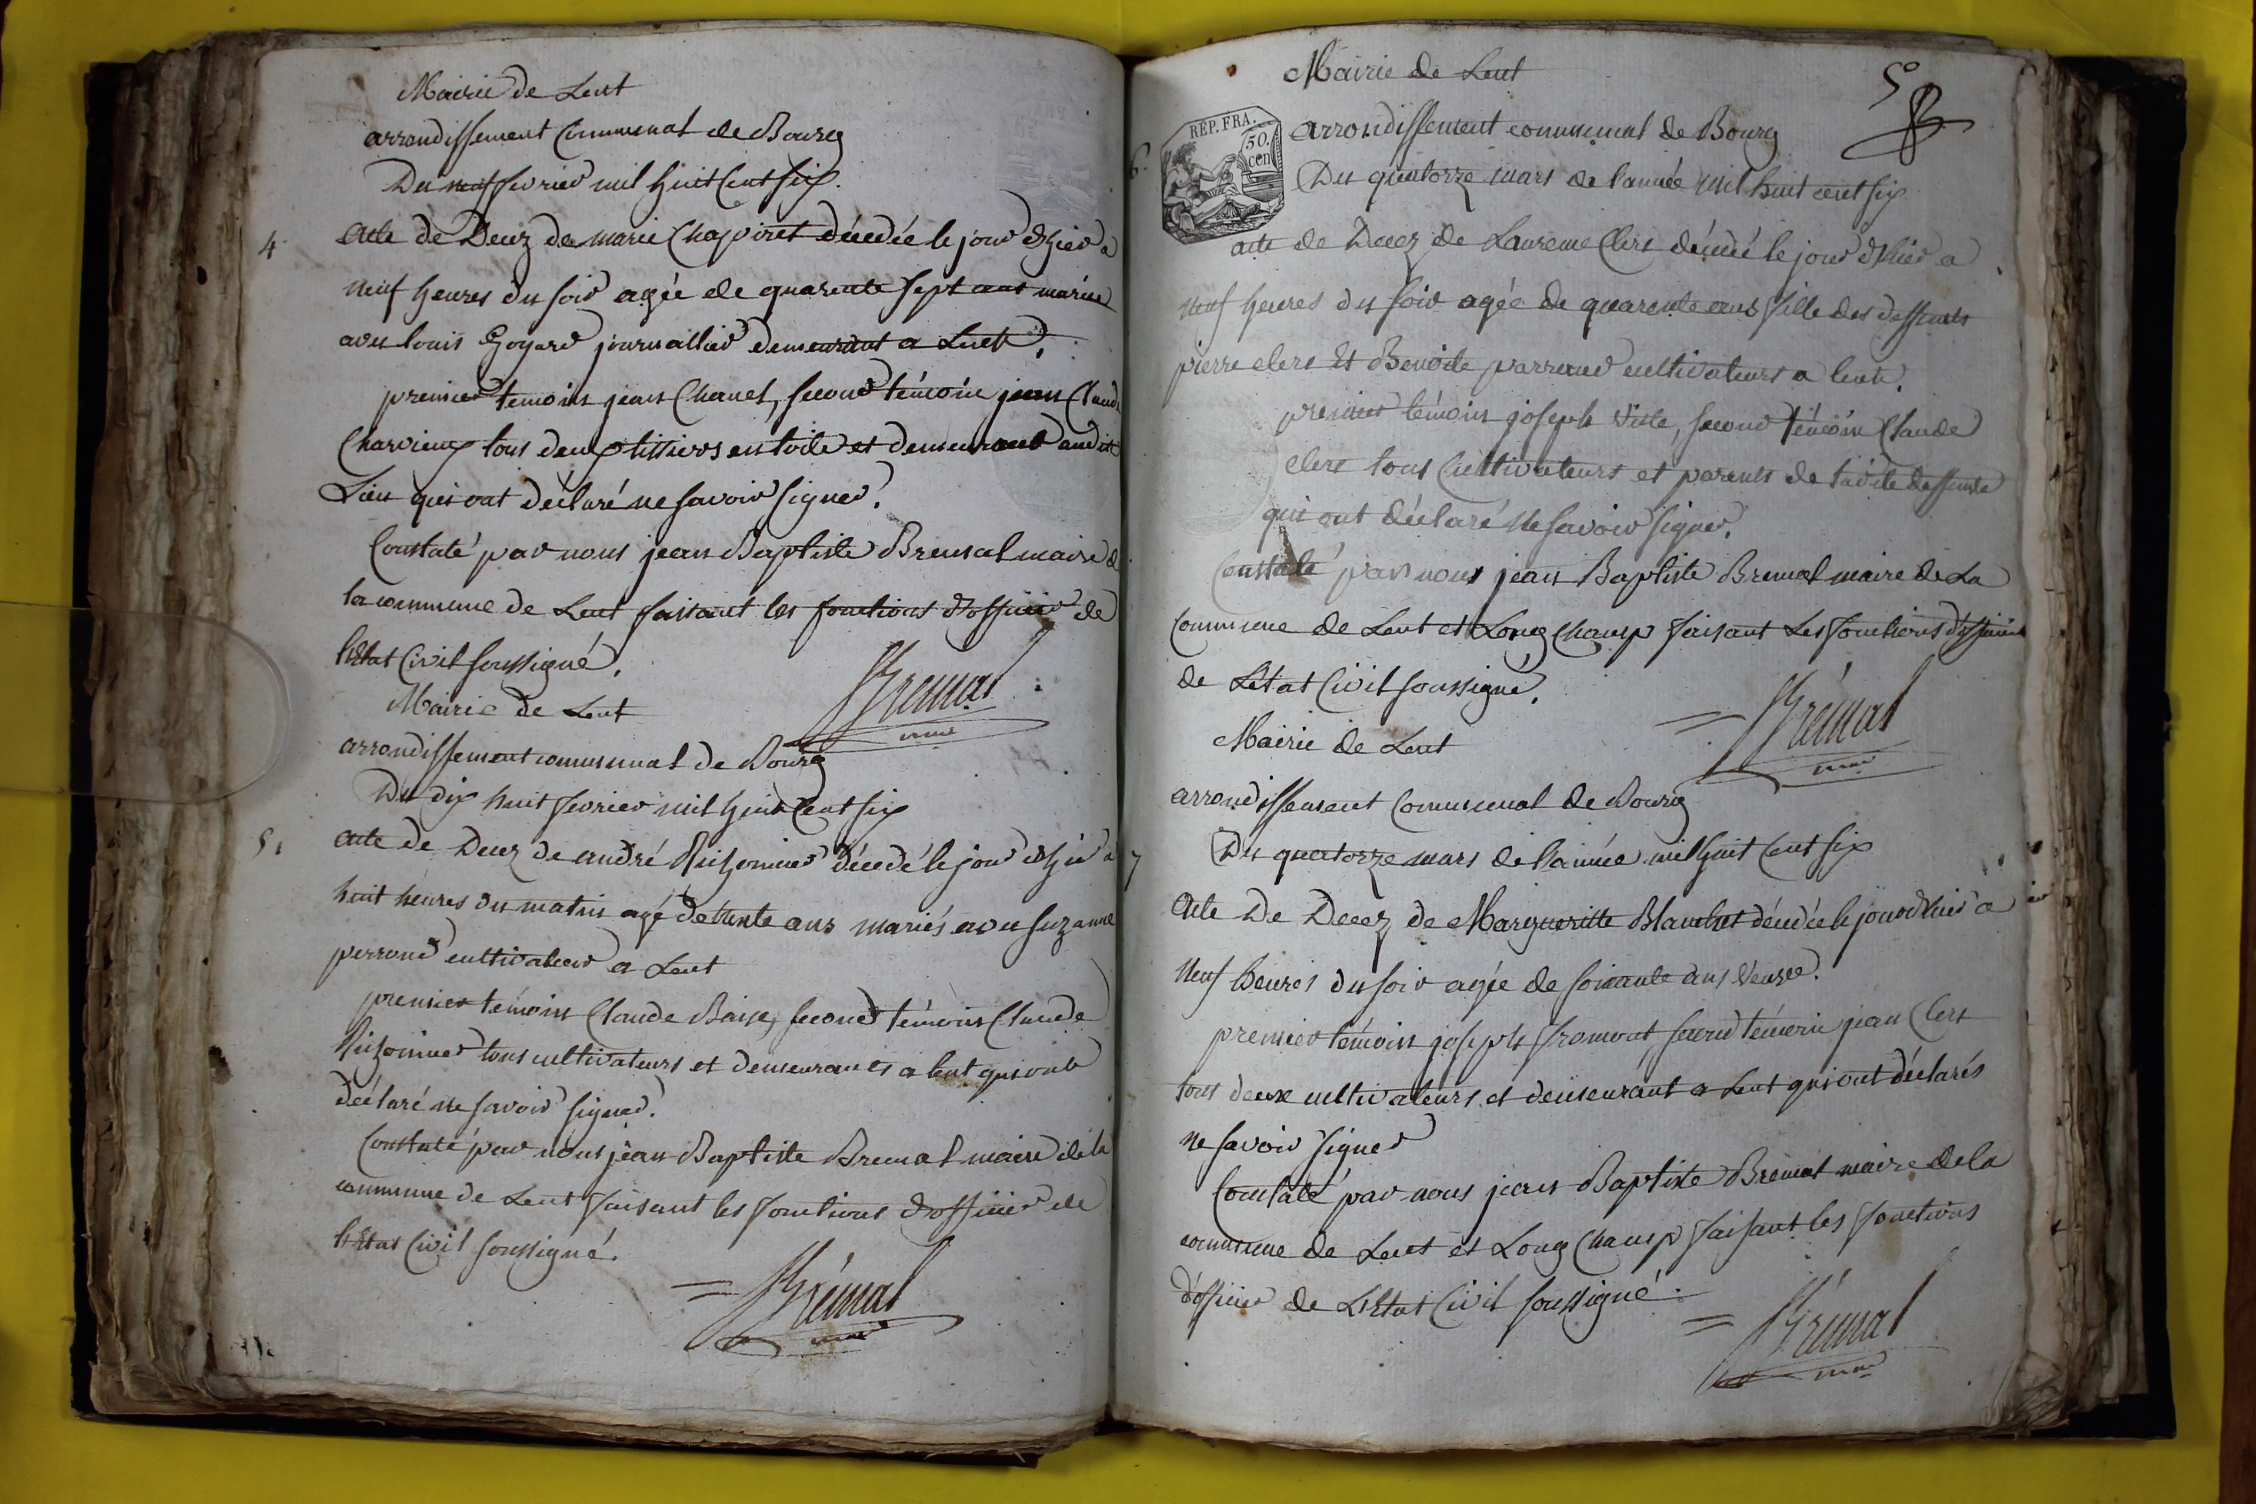 Mairie de Lent
arrondissement Communal de Bourg
Du neuf fevrier mil huit Cent six.
4
acte de Decez de marie Chapiret décedée le jour d'hier a
neuf heures du soir agée de quarente sept ans mariée
avec louis Goyard journallier demeurant a Lent.
premier temoin jean Chanel, second témoin jean Claude
Charvieux tous deux tissiers en toile et demeurant audit
Lieu qui ont déclaré ne savoir signer.
Constaté par nous jean Baptiste Bremal maire de
la commune de Lent faisant les fonctions d'officier de
l'Etat Civil soussigné.
Brémal
mre
Mairie de Lent
arrondissement communal de Bourg
Du dix huit fevrier mil huit Cent six
5.
acte de Decez de andré décedé le jour d'hier a
huit heures du matin agé de trente ans mariés avec suzanne
perroud cultivateur a Lent
premier témoin Claude second témoin Claude
tous cultivateurs et demeurants a lent qui ont
déclaré ne savoir signer.
Constaté par nous jean Baptiste Bremal maire de la
commune de Lent faisant les fonctions d'officier de
l'Etat Civil soussigné.
Brémal
mre
Mairie de Lent
5e
REP. FRA.
50.
cen
arrondissement communal de Bourg
6.
Du quatorze mars de l'année mil huit cent six
acte de Decez de Laurence Clerc décédé le jour d'hier a
neuf heures du soir agée de quarente ans fille des deffunts
pierre clerc Et Benoite cultivateurs a lent.
premier témoin joseph second témoin Claude
clerc tous Cultivateurs et parents de ladite deffunte
qui ont déclaré ne savoir signer.
Constaté par nous jean Baptiste Bremal maire de La
Commune de Lent et Long Champ faisant Les fonctions d'officier
de Letat Civil soussigné.
Brémal
mre
Mairie de Lent
arrondissement Communal de Bourg
Du quatorze mars de l'année mil huit Cent six
7
Acte De Decez de Margueritte Blanchet décédée le jour d'hier a
neuf heures du soir agée de soixante ans veuve.
premier témoin joseph fromont second témoin jean Clerc
tous deux cultivateurs et demeurant a Lent qui ont déclarés
ne savoir signer
Constaté par nous jean Baptiste Brémal maire de la
commune de Lent et Long Champ faisant les fonctions
d'officier de L'Etat Civil soussigné.
Brémal
mre